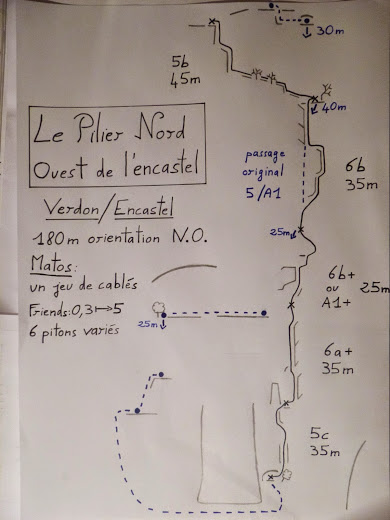 30m
5b
45m
40m
Le Pilier Nord
Ouest de l'encastel
passage
original
5/A1
6b
35m
Verdon/Encastel
180m orientation N.O.
25m
Matos:
un jeu de cablés
Friends:0,3↦5
6 pitons variés
6b+
ou
A1+
25m
25m
6a+
35m
5c
35m